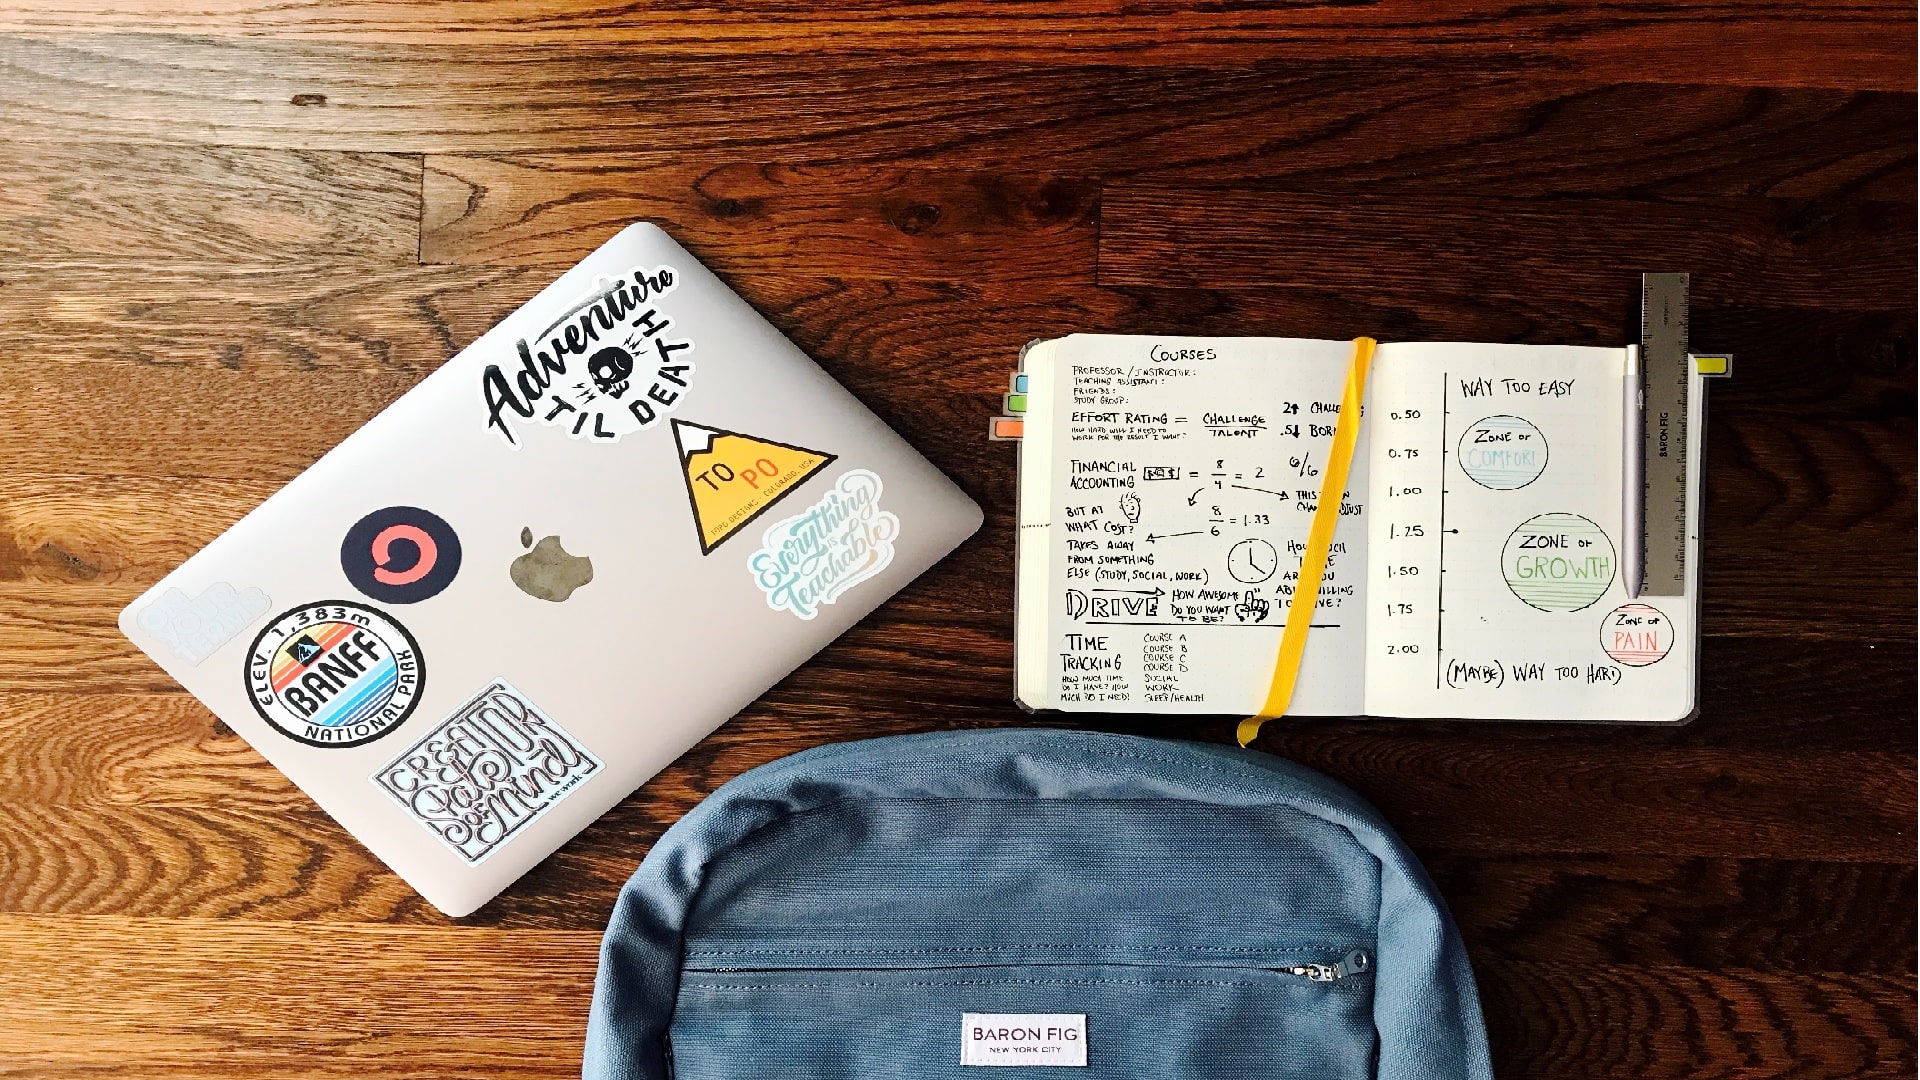 Adventure
TIL DEATH
TO PO
TOPO DESIGNS - COLORADO, USA
Everything
is
Teachable
ELEV. 1,383m
BANFF
NATIONAL PARK
CREATOR
State
OF
Mind
wework
COURSES
PROFESSOR / INSTRUCTOR:
TEACHING ASSISTANT:
FRIENDS:
STUDY GROUP:
EFFORT RATING = CHALLENGE
TALENT
HOW HARD WILL I NEED TO
WORK FOR THE RESULT I WANT?
2
.5
FINANCIAL
ACCOUNTING
$ = 8
4 = 2
6/6
BUT AT
WHAT COST?
8
6 = 1.33
THIS
TAKES AWAY
FROM SOMETHING
ELSE (STUDY, SOCIAL, WORK)
ARE YOU
DRIVE
HOW AWESOME
DO YOU WANT
TO BE?
TIME
TRACKING
HOW MUCH TIME
DO I HAVE? HOW
MUCH DO I NEED?
COURSE A
COURSE B
COURSE C
COURSE D
SOCIAL
WORK
SLEEP/HEALTH
WAY TOO EASY
0.50
0.75
1.00
1.25
1.50
1.75
2.00
ZONE OF
COMFORT
ZONE OF
GROWTH
ZONE OF
PAIN
(MAYBE) WAY TOO HARD
BARON FIG
BARON FIG
NEW YORK CITY